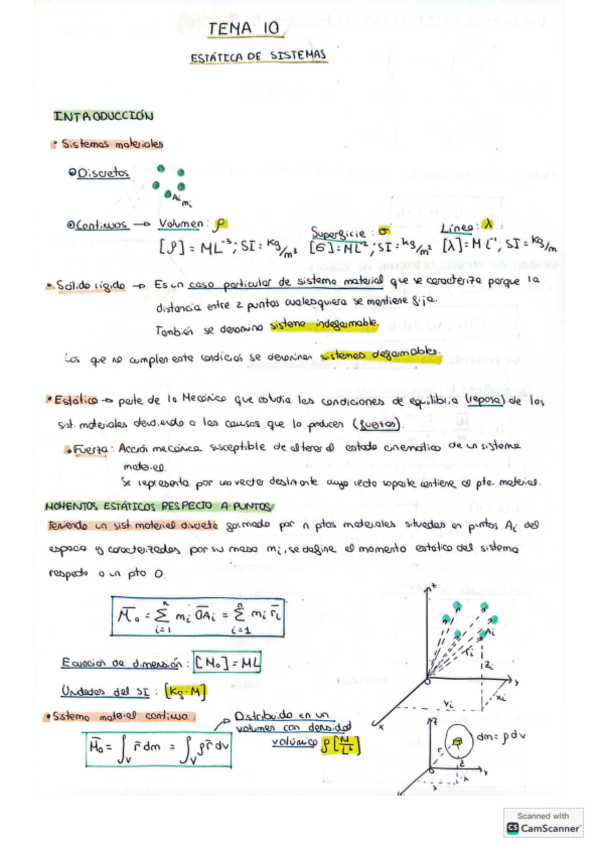 TEMA 10
ESTÁTICA DE SISTEMAS
INTRODUCCIÓN
• Sistemas materiales
Discretos
Ai
mi
Continuos → Volumen: ρ
Superficie: σ
Línea: λ
[ρ] = ML⁻³; SI = kg/m³ [σ] = ML⁻²; SI = kg/m² [λ] = ML⁻¹; SI = kg/m
• Sólido rígido → Es un caso particular de sistema material que se caracteriza porque la
distancia entre 2 puntos cualesquiera se mantiene fija.
También se denomina sistema indeformable.
Los que no cumplen esta condición se denominan sistemas deformables.
• Estática → parte de la Mecánica que estudia las condiciones de equilibrio (reposo) de los
sist. materiales atendiendo a las causas que lo producen (fuerzas).
• Fuerza: Acción mecánica susceptible de alterar el estado cinemático de un sistema
material.
Se representa por un vector deslizante cuya recta soporte contiene al pto. material.
MOMENTOS ESTÁTICOS RESPECTO A PUNTOS
Teniendo un sist. material discreto formado por n ptos materiales situados en puntos Ai del
espacio y caracterizados por su masa mi, se define el momento estático del sistema
respecto a un pto O.
M̄o = Σ mi OAi = Σ mi r̄i
i=1 n i=1 n
Ecuación de dimensión: [Mo] = ML
Unidades del SI: [Kg·M]
• Sistema material continuo
Distribuido en un
volumen con densidad
volúmica ρ [M/L³]
M̄o = ∫v r̄ dm = ∫v ρ r̄ dv
z
Ai
ri
zi
o
y
yi
xi
x
z
dm = ρ dv
r
z
y
Scanned with
CS CamScanner